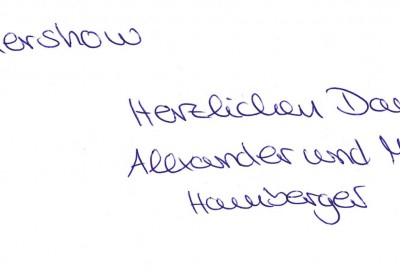 ershow
Herzlichen Da
Alexander und M
Hamberger